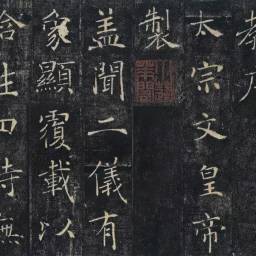 太宗文皇帝
製
盖聞二儀有
象顯覆載以
含生四時無